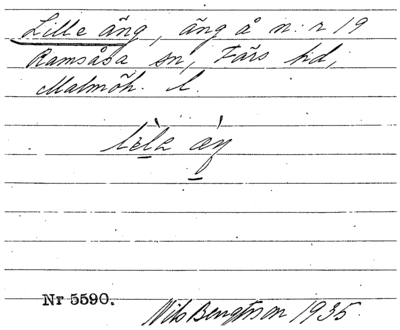 Lille äng, äng å n:r 19
Ramsåsa sn, Färs hd,
Malmöh. l.
lìla æ̀ŋ
Nr 5590.
Nils Bengtsson 1935.